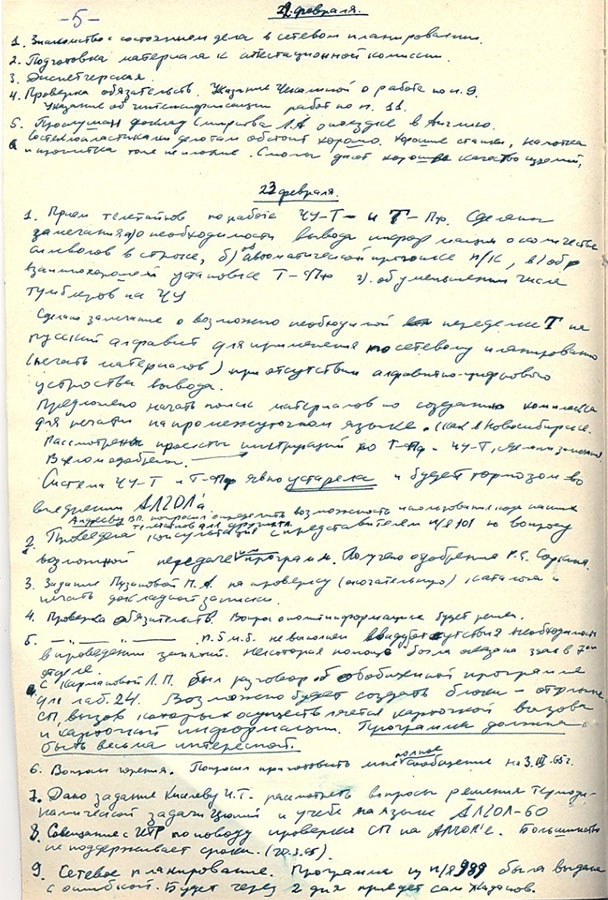 -5-
22 февраля.
1. Знакомство с состоянием дела в сетевом планировании.
2. Подготовка материала к аттестационной комиссии.
3. Диспетчерская.
4. Проверка обязательств. Указание Чекалиной о работе по п. 9.
Указание об интенсификации работ по п. 11.
5. Прослушал доклад Смирнова Л.А о поездке в Англию.
Состеклопластиками делотам обстоит хорошо. Хорошие станки, намотка
и пропитка тоже неплохие. Смолы дают хорошее качество изделий,
23 февраля.
1. Прием телетайпов по работе ЧУ-Т- и Т-Пр. Сделаны
замечания: а) о необходимости вывода информации о количестве
символов в строке, б) об автоматической прогонке п/к, в) об
установке Т-Пр г) об уменьшении числа
тумблеров на ЧУ
Сделано замечание о возможно необходимой переделке Т на
русский алфавит для применения по сетевому планированию
(печать материалов) при отсутствии алфавитно-цифрового
устройства вывода.
Предложено начать поиск материалов по созданию комплекса
для печати на промежуточном языке. (как в Новосибирске.
Рассмотрены проекты инструкций по Т-Пр и ЧУ-Т, сделаны замечания.
В целом одобрены.
Система ЧУ-Т и Т-Пр явно устарела и будет тормозом во
внедрении АЛГОЛ'а.
Андрееву В.П. поручил определить возможность использования
телетайпа для
2. Проведена консультация с представителем п/я 101 по вопросу
возможной передаче им программ. Получено одобрение
3. Задание Пузановой М.А. на проверку (окончательную) каталога и
печать докладной записки.
4. Проверка обязательств. Вопрос о мотиформации будет решен.
5. —"— —"— п. 5 и. б. не выполнен ввиду отсутствия необходимости
в проведении занятий. Некоторая помощь была оказана зав. в 7ом
отделе.
С Кармановой Л.П. был разговор об обобщенной программе
для лаб. 24. Возможно будет создать блоки - отдельные
СП, вызов которых осуществляется карточкой вызова
и карточкой информации. Программа должна
быть весьма интересной.
6. Вопросы чтения. Попросил приготовить мне полное сообщение на 3.III.65г.
7. Дано задание Киселеву И.Т. рассмотреть вопросы решения термоди-
намической задачи и учебе на языке АЛГОЛ-60
8. Совещание с ИТР по поводу проверки СП на АЛГОЛ'е. Большинство
не поддерживает сроки.
9. Сетевое планирование. Программа из п/я 989 была выдана
с ошибкой. Будет через 2 дня приедет сам Жданов.